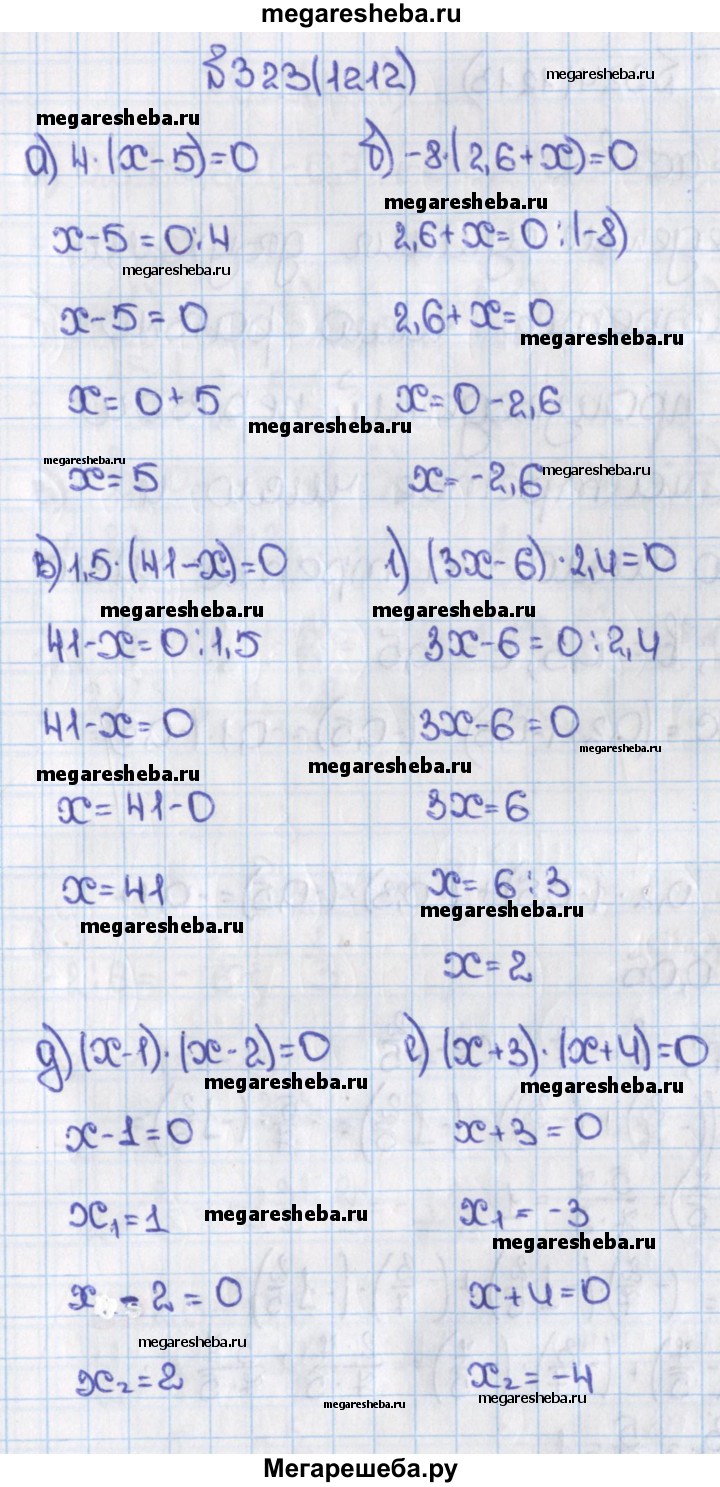 megaresheba.ru
№323(1212)
megaresheba.ru
megaresheba.ru
а) 4·(x-5)=0
б) -8·(2,6+x)=0
megaresheba.ru
x-5=0:4
2,6+x=0:(-8)
megaresheba.ru
x-5=0
2,6+x=0
megaresheba.ru
x=0+5
x=0-2,6
megaresheba.ru
megaresheba.ru
x=5
x=-2,6
megaresheba.ru
в) 1,5·(41-x)=0
г) (3x-6)·2,4=0
megaresheba.ru
megaresheba.ru
41-x=0:1,5
3x-6=0:2,4
41-x=0
3x-6=0
megaresheba.ru
megaresheba.ru
megaresheba.ru
x=41-0
3x=6
x=41
x=6:3
megaresheba.ru
megaresheba.ru
x=2
д) (x-1)·(x-2)=0
е) (x+3)·(x+4)=0
megaresheba.ru
megaresheba.ru
x-1=0
x+3=0
x₁=1
megaresheba.ru
x₁=-3
megaresheba.ru
x-2=0
x+4=0
megaresheba.ru
x₂=2
x₂=-4
megaresheba.ru
megaresheba.ru
Мегарешеба.ру